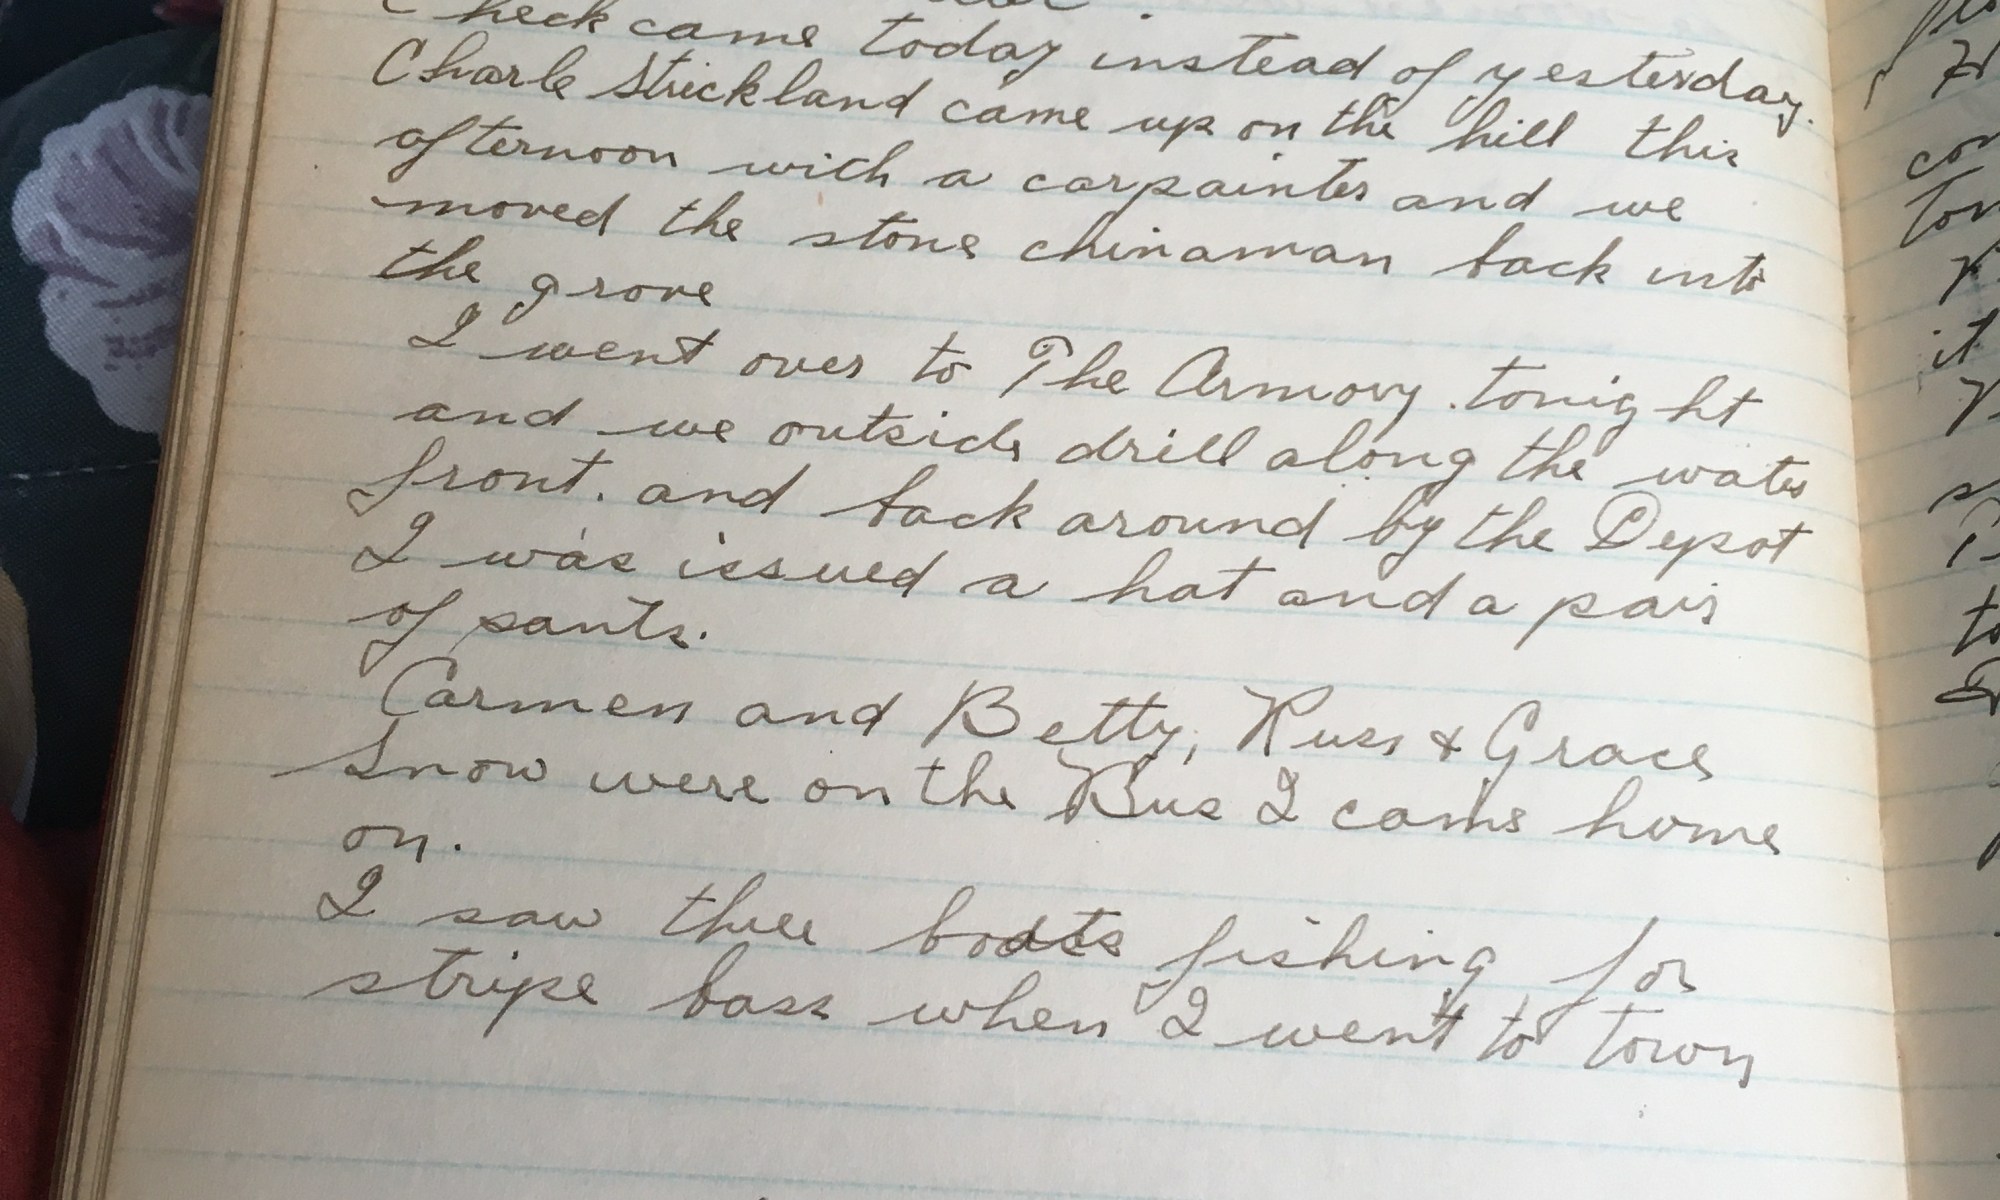 Check came today instead of yesterday.
Charle Strickland came up on the hill this
afternoon with a carpainter and we
moved the stone chinaman back into
the grove
I went over to The Armory. tonight
and we outside drill along the water
front. and back around by the Depot
I was issued a hat and a pair
of pants.
Carmen and Betty, Russ & Grace
Snow were on the Bus I came home
on.
I saw three boats fishing for
stripe bass when I went to town